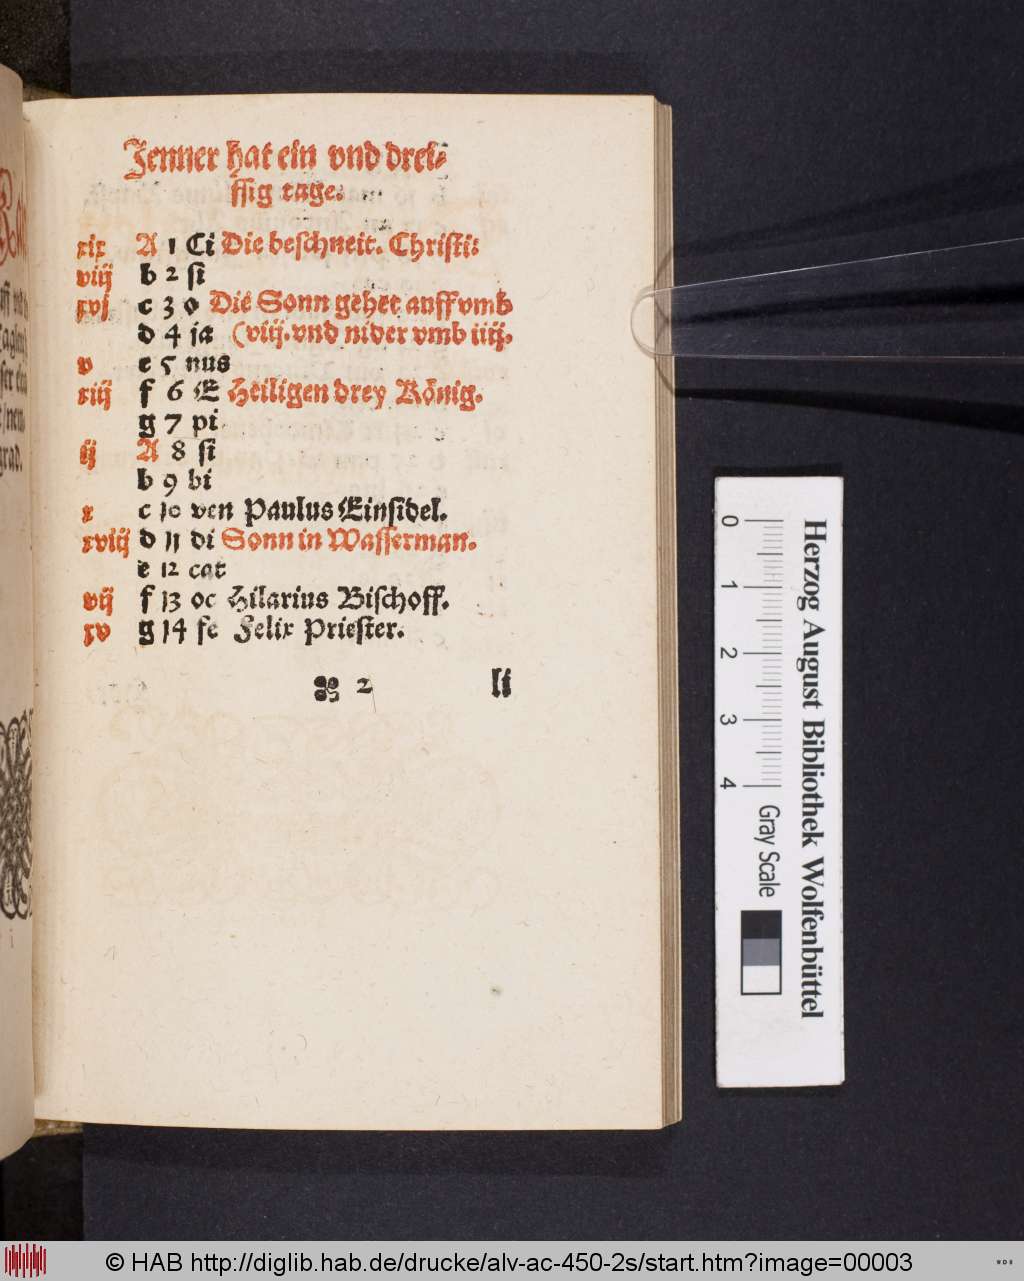 Jenner hat ein vnd drei-
ssig tage.
xix A 1 Ci Die beschneit. Christi:
viij b 2 si
xvj c 3 o Die Sonn gehet auff vmb
d 4 ja (viij. vnd nider vmb iiij.
v e 5 nus
xiij f 6 E Heiligen drey König.
g 7 pi
ij A 8 si
b 9 bi
x c 10 ven Paulus Einsidel.
xviij d 11 di Sonn in Wasserman.
e 12 cat
vij f 13 oc Hilarius Bischoff.
xv g 14 fe Felix Priester.
2 li
grad.
Herzog August Bibliothek Wolfenbüttel
0 1 2 3 4 Gray Scale
© HAB http://diglib.hab.de/drucke/alv-ac-450-2s/start.htm?image=00003